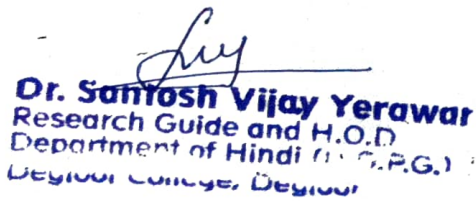 Dr. Santosh Vijay Yerawar
Research Guide and H.O.D
Department of Hindi (U.G.P.G.)
Deglour College, Deglour